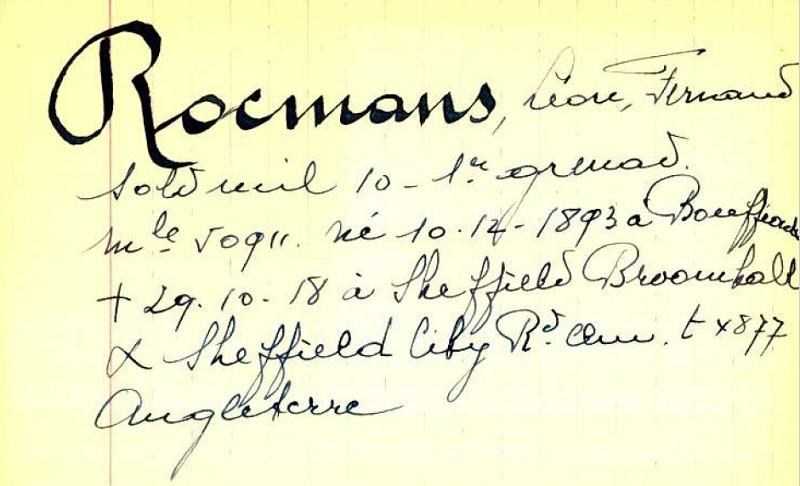 Rocmans, Léon, Fernand
Sold mil 10 - 1er grenad.
mle 50911. né 10.12-1893 à Bouffioulx
+ 29.10.18 à Sheffield Broomhall
Sheffield City Rd. Cem. t x877
Angleterre